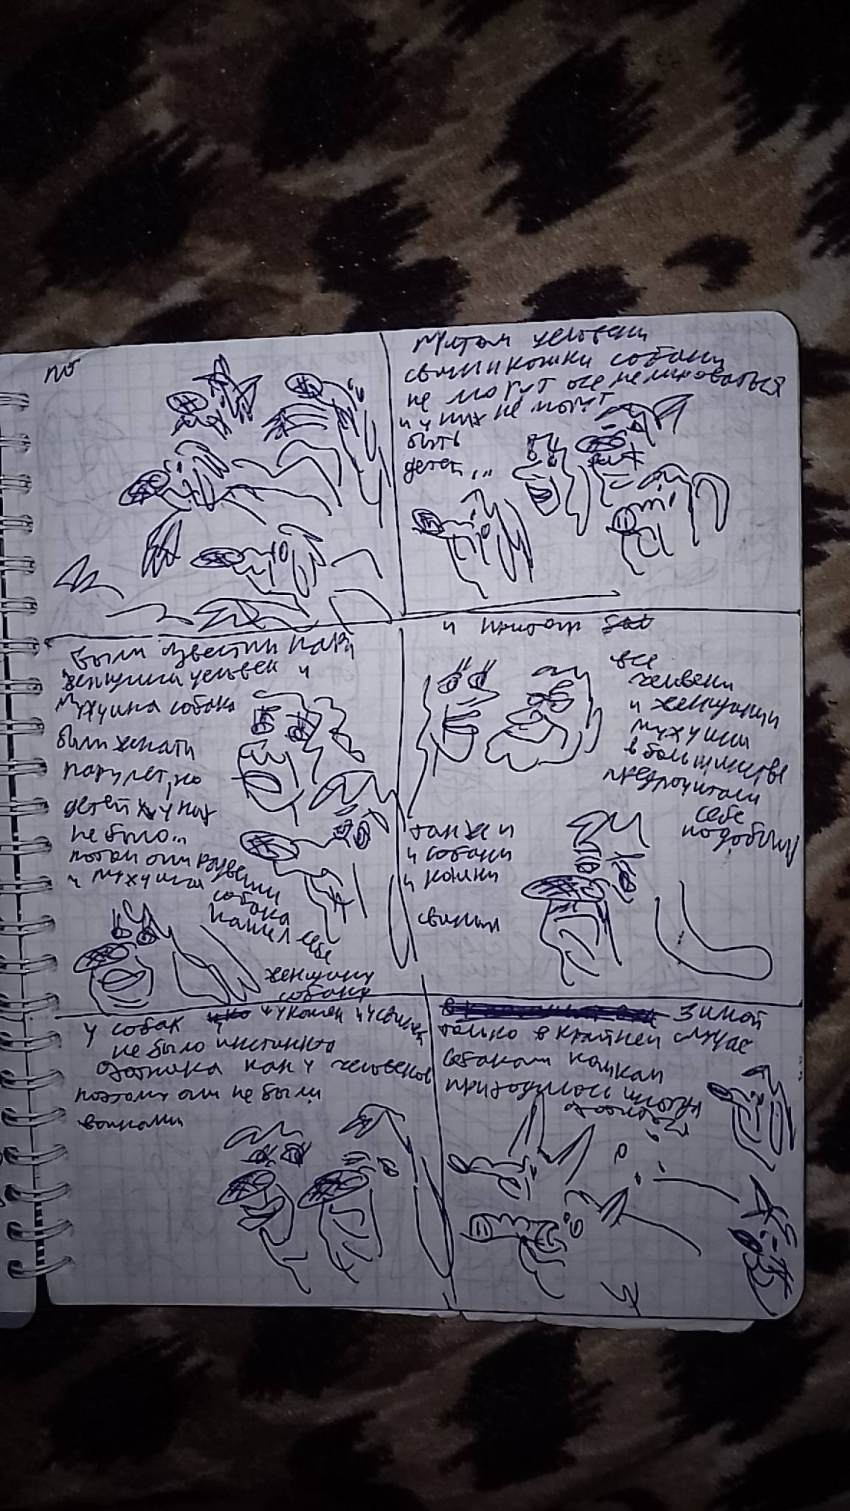 но
при том человеки
свиньи кошки собаки
не могут
и у них не могут
быть
детей...
были известны пара
женщина человек и
мужчина собака
были женаты
пару лет, но
детей у них
не было...
потом они развелись
и мужчина
собака
нашел себе
женщину
собаку
и притом
все
человеки
и женщины
мужчины
в большинстве
предпочитали
себе
подобных
также и
и собаки
и кошки
свиньи
у собак и у кошек и у свиней
не было инстинкта
охотника как у человеков
поэтому они не были
воинами
зимой
только в крайнем случае
собакам кошкам
приходилось